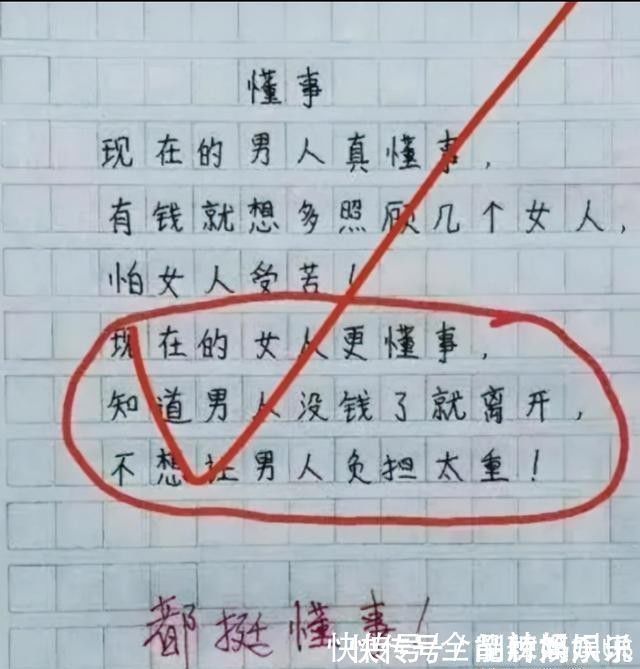 懂事
现在的男人真懂事,
有钱就想多照顾几个女人,
怕女人受苦!
现在的女人更懂事,
知道男人没钱了就离开,
不想让男人负担太重!
都挺懂事!
快传号